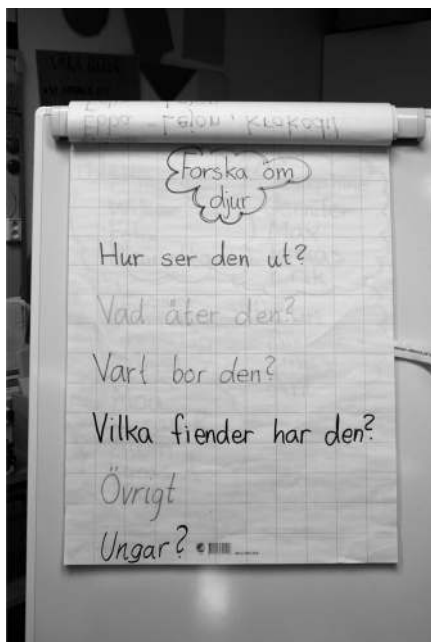 Ebba - Lejon, krokodil
Forska om
djur
Hur ser den ut?
Vad äter den?
Vart bor den?
Vilka fiender har den?
Övrigt
Ungar?